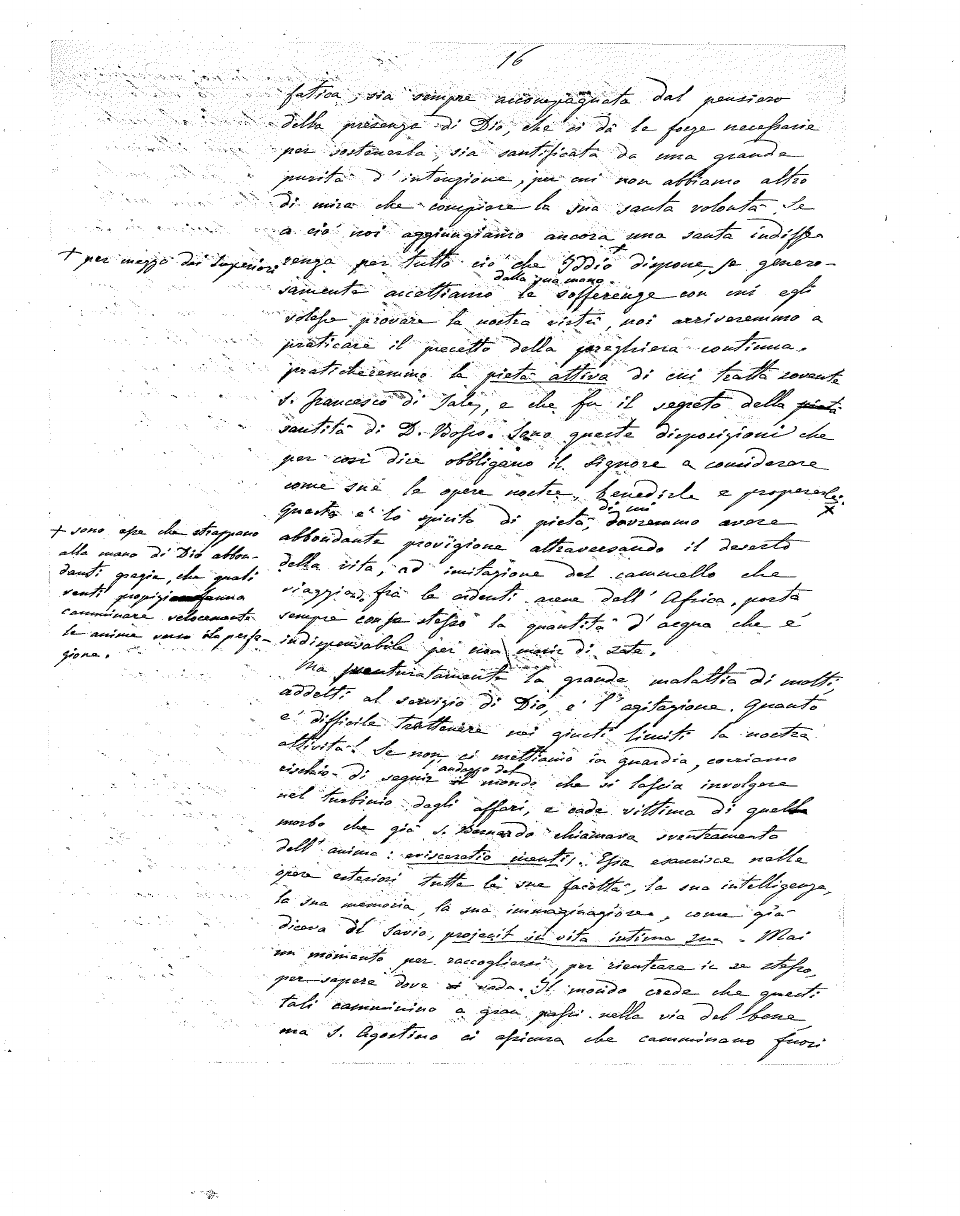 16
fatica, sia sempre accompagnata dal pensiero
della presenza di Dio, che ci dà le forze necessarie
per sostenerla, sia santificata da una grande
purità d'intenzione, per cui non abbiamo altro
di mira che compiere la sua santa volontà. Se
a ciò noi aggiungiamo ancora una santa indiffe
+ per mezzo dei Superiori
renza per tutto ciò che Iddio + dispone, se genero-
dalla sua mano.
samente accettiamo le sofferenze con cui egli
volesse provare la nostra virtù, noi arriveremmo a
praticare il precetto della preghiera continua,
praticheremmo la pietà attiva di cui tratta sovente
S. Francesco di Sales, e che fu il segreto della pietà
santità di D. Bosco. Sono queste disposizioni che
per così dire obbligano il Signore a considerare
come sue le opere nostre, benedirle e
+
di cui
Questo è lo spirito di pietà dovremmo avere
+ sono esse che strappano
alla mano di Dio abbon-
danti grazie, che quali
venti propizi fanno
camminare velocemente
le anime verso la perfe-
zione.
abbondante provvigione attraversando il deserto
della vita, ad imitazione del cammello che
viaggiando fra le ardenti arene dell'Africa, porta
sempre con se stesso la quantità d'acqua che è
indispensabile per non morire di sete.
Ma sventuratamente la grande malattia di molti,
addetti al servizio di Dio, è l'agitazione. Quanto
è difficile trattenere nei giusti limiti la nostra
attività! Se non ci mettiamo in guardia, corriamo
l'andazzo del
rischio di seguir il mondo che si lascia involgere
nel turbinio degli affari, e cade vittima di quel
morbo che già S. Bernardo chiamava sventramento
dell'anima: evisceratio mentis. Essa esaurisce nelle
opere esteriori tutte le sue facoltà, la sua intelligenza,
la sua memoria, la sua immaginazione, come già
diceva il Savio, projecit in vita intima sua. Mai
un momento per raccogliersi, per rientrare in se stesso,
per sapere dove si vada. Il mondo crede che questi
tali camminino a gran passi nella via del bene
ma S. Agostino ci assicura che camminano fuori